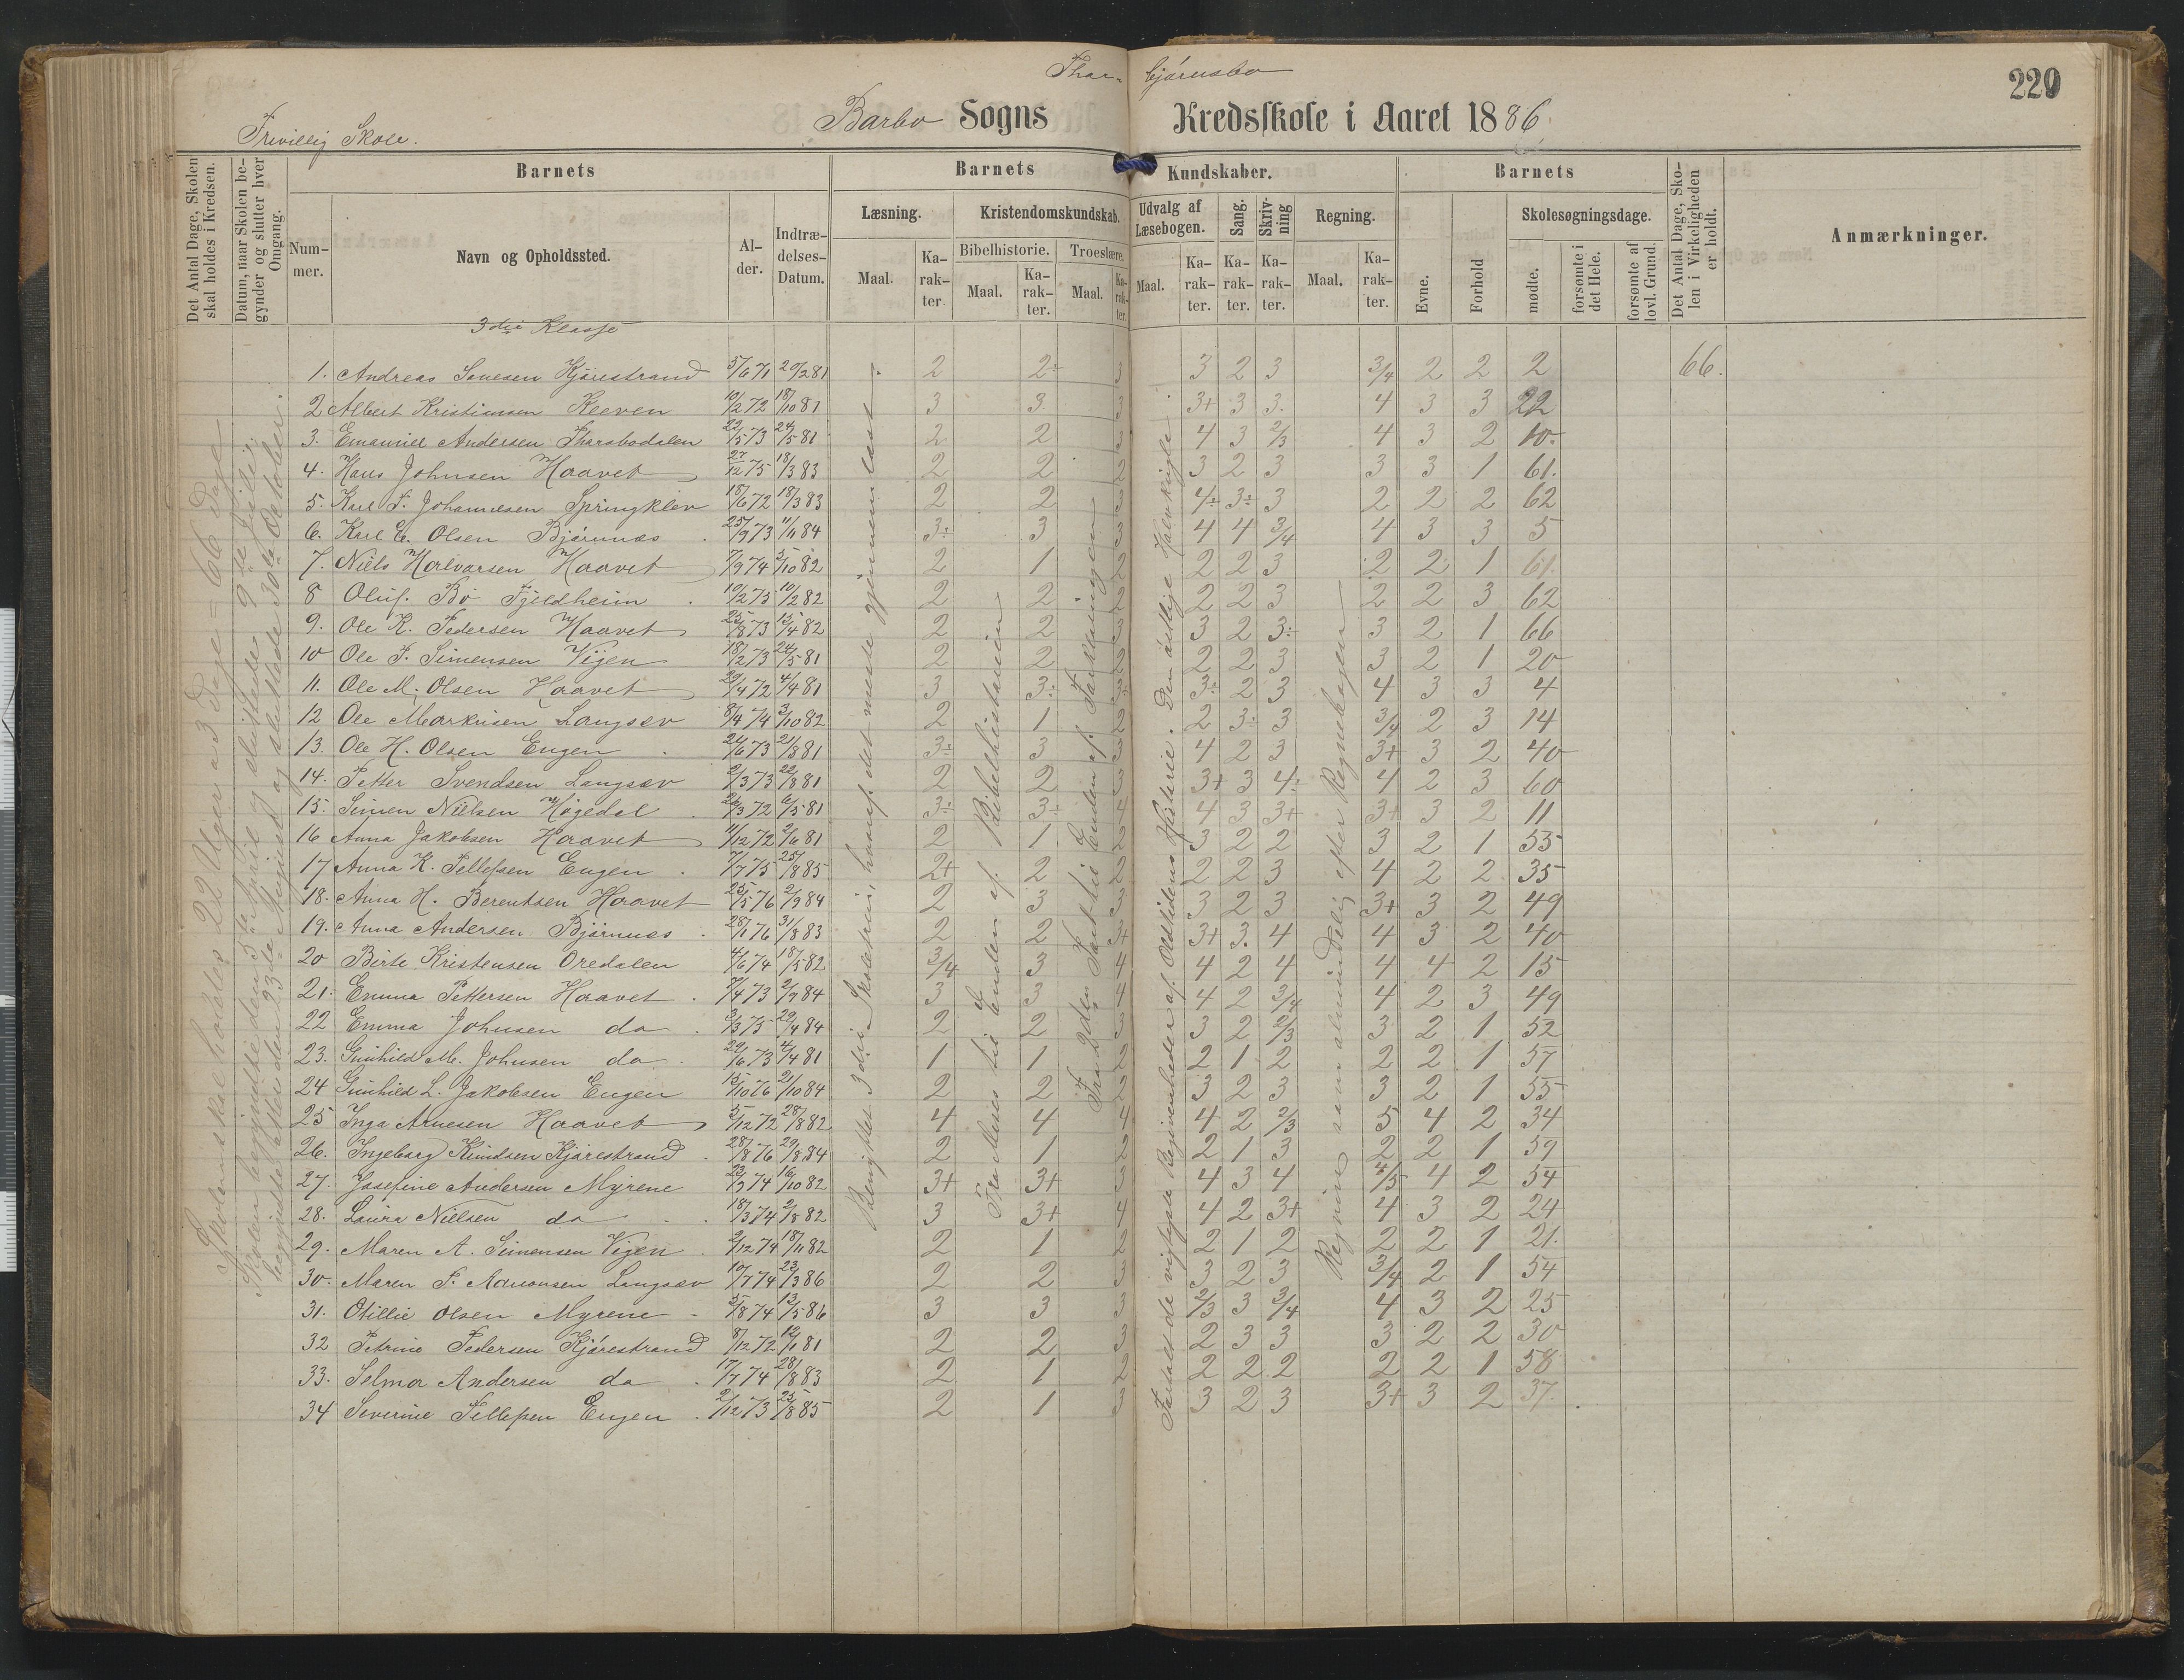 Thor- bjørnsbo
220
Barbo Sogns Kredsskole i Aaret 1886.
Frivillig Skole.
Det Antal Dage, Skolen skal holdes i Kredsen.
Datum, naar Skolen begynder og slutter hver Omgang.
Barnets Barnets Kundskaber. Barnets
Det Antal Dage, Skolen i Virkeligheden er holdt.
Anmærkninger.
Nummer. Navn og Opholdssted. Alder. Indtrædelses-Datum.
Læsning. Kristendomskundskab. Udvalg af Læsebogen. Sang. Skrivning Regning. Evne. Forhold Skolesøgningsdage.
Bibelhistorie. Troeslære.
Maal. Karakter. Maal. Karakter. Maal. Karakter. Maal. Karakter. Karakter. Karakter. Maal. Karakter. mødte. forsømte i det Hele. forsømte af lovl. Grund.
3die Klasse
1. Andreas Hjørestrand 5/6 71 20/2 81 2 2÷ 3 3 2 3 3/4 2 2 2 66.
2 Albert Kristiansen Kleven 10/2 72 18/10 81 3 3 3 3+ 3 3. 4 3 3 22
3. Emanuel Andersen Thorsbodalen 22/5 73 24/5 81 2 2 3 4 3 2/3 4 3 2 10
4. Hans Johnsen Haavet 27/12 75 18/3 83 2 2 2 3 2 3 3 3 1 61.
5. Karl F. Johannesen Springklev 18/6 72 18/3 83 2 2 3 4÷ 3÷ 3 2 2 2 62
6. Karl E. Olsen Bjørnnæs 25/9 73 11/11 84 3÷ 3 3 4 4 3/4 4 3 3 5
7. Niels Halvorsen Haavet 7/9 74 5/10 82 2 1 2 2 2 3 2 2 1 61.
8 Oluf Bø Fjeldheim 10/2 75 10/2 82 2 2 2 2 2 3 2 2 3 62
9. Ole K. Pedersen Haavet 25/8 73 15/4 82 2 2 3 3 2 3÷ 3 2 1 66
10 Ole F. Simensen Vijen 18/2 73 24/5 81 2 2 2 2 2 3 3 2 1 20
11. Ole M. Olsen Haavet 29/4 72 4/4 81 3 3÷ 3÷ 3÷ 2 3 4 3 3 4
12 Ole Markusen Langsæv 8/4 74 3/10 82 2 1 2 2 3÷ 3 3/4 2 3 14
13. Ole H. Olsen Engen 24/6 73 21/8 81 3÷ 3 3 4 2 3 3+ 3 2 40
14. Petter Svendsen Langsæv 2/3 73 22/8 81 2 2 3 3+ 3 4÷ 4 2 3 60
15. Simen Nielsen Høgedal 26/3 72 6/5 81 3÷ 3÷ 4 4 3 3+ 3+ 3 2 11
16 Anna Jakobsen Haavet 11/12 72 2/6 81 2 1 2 3 2 2 3 2 1 55
17 Anna K. Tellefsen Engen 7/7 75 25/8 85 2+ 2 2 2 2 3 4 2 2 35
18. Anna H. Berentsen Haavet 25/5 76 2/9 84 2 3 3 3 2 3 3+ 3 2 49
19. Anna Andersen Bjørnnæs 28/1 76 31/8 83 2 2 3+ 3+ 3. 4 4 3 2 40
20 Birte Kristensen Oredalen 4/6 74 18/5 82 3/4 3 4 4 2 4 4 4 2 15
21. Emma Pettersen Haavet 7/4 73 2/7 84 3 3 4 4 2 3/4 4 2 3 49
22 Emma Johnsen do 3/3 75 29/4 84 2 2 3 3 2 2/3 3 2 1 52
23. Gunhild M. Johnsen do 29/6 73 4/4 81 1 1 2 2 1 2 2 2 1 57
24 Gunhild L. Jakobsen Engen 15/10 76 21/10 84 2 2 2 3 2 3 3 2 1 55
25 Inga Arnesen Haavet 5/12 72 28/8 82 4 4 4 4 2 2/3 5 4 2 34
26. Ingeborg Knudsen Kjørestrand 28/8 76 29/8 84 2 1 2 2 1 3 2 2 1 59
27. Josefine Andersen Myrene 23/3 74 16/10 82 3+ 3+ 3 4 3 4 4/5 4 2 54
28. Laura Nielsen do 18/3 74 2/8 82 3 3+ 4 4 2 3+ 4 3 2 24
29. Maren A. Simensen Vijen 2/12 74 18/11 82 2 1 2 2 1 2 2 2 1 21.
30. Maren S. Langsæv 10/7 74 23/3 86 2 2 3 3 2 3 3/4 2 1 54
31. Otillie Olsen Myrene 5/8 74 13/5 86 3 3 3 2/3 3 3/4 4 3 2 25
32 Petrine Pedersen Kjørestrand 8/12 72 12/1 81 2 2 3 2 3 3 3 2 2 30
33. Selma Andersen do 17/7 74 28/8 83 2 1 2 2 2 2 2 2 1 58
34 Severine Tellefsen Engen 2/12 73 25/8 85 2 1 3 3 2 3 3+ 3 2 37.
skal holdes 22 Uger a 3 Dage = 66 Dage
Skolen begyndte den 5te April og sluttede 9de Juli;
begyndte atter den 23de August og sluttede 30te October.
Benyttet 3die Skoletrin, hvoraf det meste gjennemlæst.
Fra Moses til Enden af Bibelhistorien
Fra 2den Part til Enden af Forklaringen
Fortalt de vigtigste Begivenheder af Oldtidens Historie. Den østlige Halvkugle.
Regning som almindelig efter Regnebogen